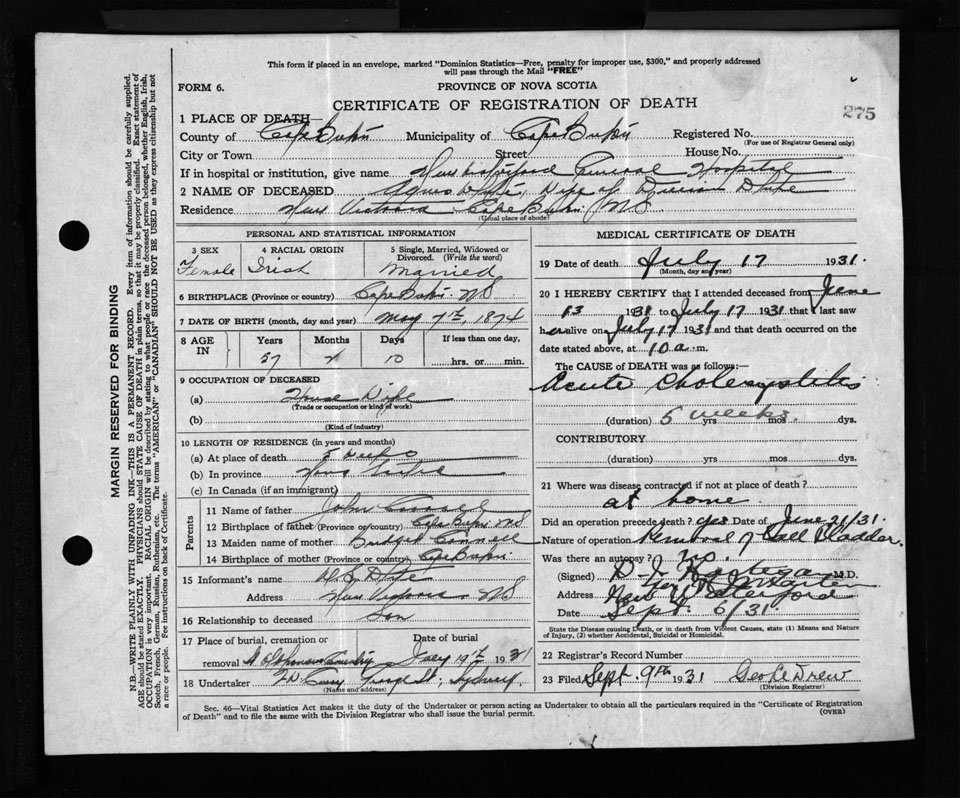 This form if placed in an envelope, marked "Dominion Statistics—Free, penalty for improper use, $300," and properly addressed
will pass through the Mail "FREE"
FORM 6.
PROVINCE OF NOVA SCOTIA
CERTIFICATE OF REGISTRATION OF DEATH
275
1 PLACE OF DEATH—
County of Cape Breton Municipality of Cape Breton Registered No.
(For use of Registrar General only)
City or Town Street House No.
If in hospital or institution, give name New Waterford General Hospital
2 NAME OF DECEASED Agnes Wife of
Residence New Victoria Cape Breton NS
(Usual place of abode)
PERSONAL AND STATISTICAL INFORMATION
3 SEX 4 RACIAL ORIGIN 5 Single, Married, Widowed or Divorced. (Write the word)
Female Irish Married
6 BIRTHPLACE (Province or country) Cape Breton NS
7 DATE OF BIRTH (month, day and year) May 7th, 1874
8 AGE IN Years Months Days If less than one day,
57 2 10 hrs. or min.
9 OCCUPATION OF DECEASED
(a) House Wife
(Trade or occupation or kind of work)
(b)
(Kind of industry)
10 LENGTH OF RESIDENCE (in years and months)
(a) At place of death 5 weeks
(b) In province Nova Scotia
(c) In Canada (if an immigrant)
Parents
11 Name of father John
12 Birthplace of father (Province or country) Cape Breton NS
13 Maiden name of mother Bridget Connell
14 Birthplace of mother (Province or country) C. Breton
15 Informant's name
Address New Victoria NS
16 Relationship to deceased Son
17 Place of burial, cremation or Date of burial
removal Cemetery July 19th 1931
18 Undertaker George St, Sydney
(Name and address)
MEDICAL CERTIFICATE OF DEATH
19 Date of death July 17 1931.
(Month, day and year)
20 I HEREBY CERTIFY that I attended deceased from June
13 1931 to July 17 1931 that I last saw
her alive on July 17 1931 and that death occurred on the
date stated above, at 10 a. m.
The CAUSE OF DEATH was as follows:—
Acute Cholecystitis
(duration) 5 weeks yrs mos. dys.
CONTRIBUTORY
(duration) yrs mos dys.
21 Where was disease contracted if not at place of death?
at home
Did an operation precede death? yes Date of June 21/31.
Nature of operation Removal of Gall Bladder.
Was there an autopsy? No.
(Signed) M.D.
Address New Waterford
Date Sept. 6/31
State the Disease causing Death, or in death from Violent Causes, state (1) Means and Nature of Injury, (2) whether Accidental, Suicidal or Homicidal.
22 Registrar's Record Number
23 Filed Sept. 9th 1931 Drew
(Division Registrar)
Sec. 46—Vital Statistics Act makes it the duty of the Undertaker or person acting as Undertaker to obtain all the particulars required in the "Certificate of Registration
of Death" and to file the same with the Division Registrar who shall issue the burial permit.
(OVER)
MARGIN RESERVED FOR BINDING
N.B.—WRITE PLAINLY, WITH UNFADING INK—THIS IS A PERMANENT RECORD. Every item of information should be carefully supplied.
AGE should be stated EXACTLY. PHYSICIANS should STATE CAUSE OF DEATH in plain terms, so that it may be properly classified. Exact statement of
OCCUPATION is very important. RACIAL ORIGIN will be described by stating to what people or race the deceased person belonged, whether English, Irish,
Scotch, French, German, Russian, Ruthenian, etc. The terms "AMERICAN" or "CANADIAN" SHOULD NOT BE USED as they express citizenship but not
a race or people. See instructions on back of Certificate.